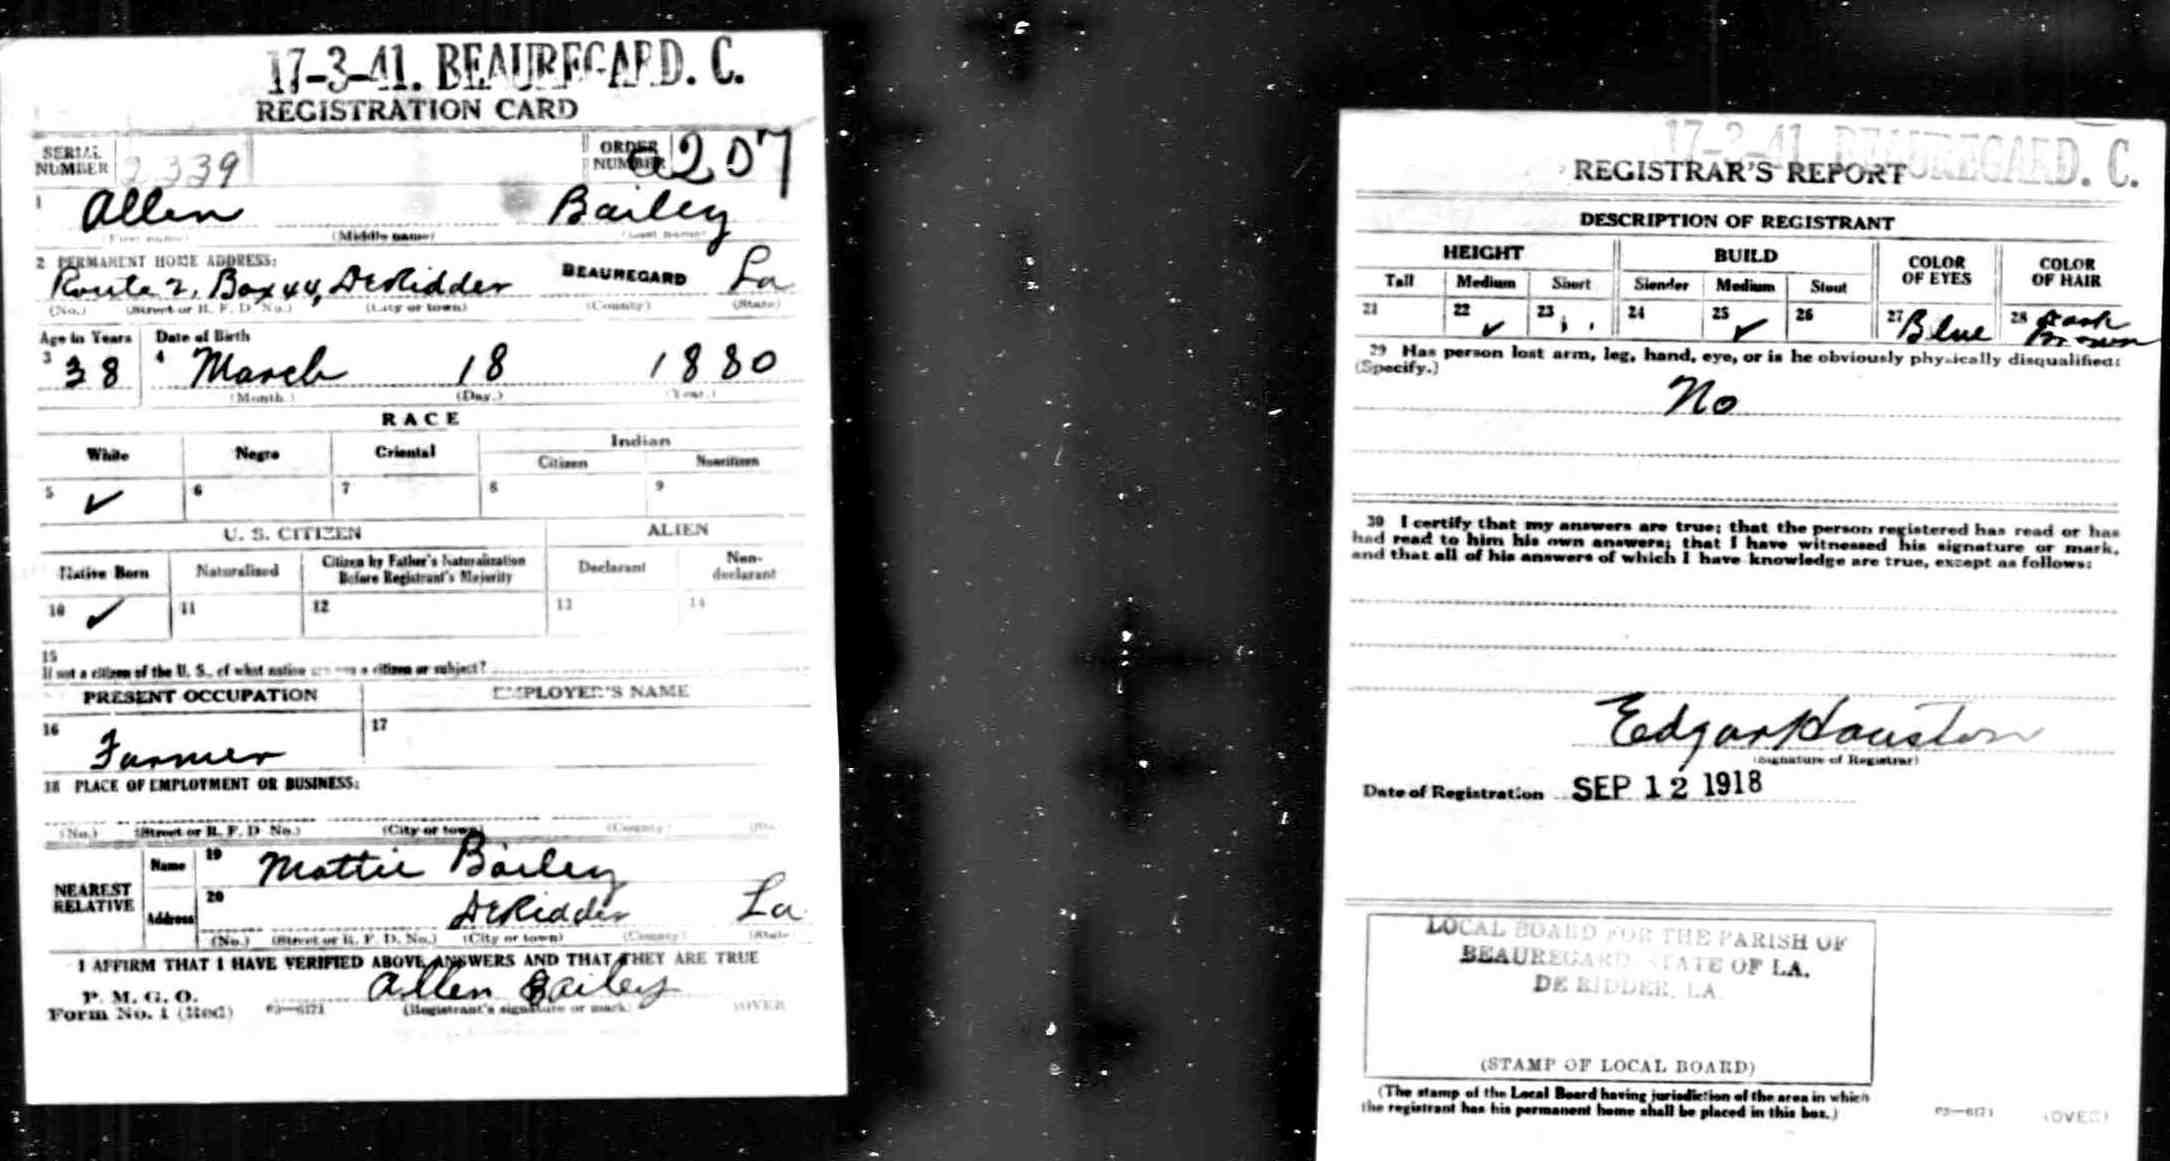 17-3-41. BEAUREGARD. C.
REGISTRATION CARD
SERIAL NUMBER 2339 ORDER NUMBER 207
1 Allen Bailey
(First name) (Middle name) (Last name)
2 PERMANENT HOME ADDRESS:
Route 2, Box 44, DeRidder BEAUREGARD La
(No.) (Street or R. F. D. No.) (City or town) (County) (State)
Age in Years Date of Birth
3 38 4 March 18 1880
(Month.) (Day.) (Year.)
RACE
White Negro Oriental Indian
Citizen Noncitizen
5 ✓ 6 7 8 9
U. S. CITIZEN ALIEN
Native Born Naturalized Citizen by Father's Naturalization Before Registrant's Majority Declarant Non-declarant
10 ✓ 11 12 13 14
15
If not a citizen of the U. S., of what nation are you a citizen or subject?
PRESENT OCCUPATION EMPLOYER'S NAME
16 Farmer 17
18 PLACE OF EMPLOYMENT OR BUSINESS:
(No.) (Street or R. F. D. No.) (City or town) (County) (State)
NEAREST RELATIVE Name 19 Mattie Bailey
Address 20 DeRidder La
(No.) (Street or R. F. D. No.) (City or town) (County) (State)
I AFFIRM THAT I HAVE VERIFIED ABOVE ANSWERS AND THAT THEY ARE TRUE
P. M. G. O.
Form No. 1 (Red) 03—6171 Allen Bailey
(Registrant's signature or mark) (OVER)
17-3-41. BEAUREGARD. C.
REGISTRAR'S REPORT
DESCRIPTION OF REGISTRANT
HEIGHT BUILD COLOR OF EYES COLOR OF HAIR
Tall Medium Short Slender Medium Stout
21 22 ✓ 23 24 25 ✓ 26 27 Blue 28 Dark Brown
29 Has person lost arm, leg, hand, eye, or is he obviously physically disqualified?
(Specify.)
No
30 I certify that my answers are true; that the person registered has read or has
had read to him his own answers; that I have witnessed his signature or mark,
and that all of his answers of which I have knowledge are true, except as follows:
Edgar Houston
(Signature of Registrar)
Date of Registration SEP 12 1918
LOCAL BOARD FOR THE PARISH OF
BEAUREGARD STATE OF LA.
DE RIDDER, LA.
(STAMP OF LOCAL BOARD)
(The stamp of the Local Board having jurisdiction of the area in which
the registrant has his permanent home shall be placed in this box.)
03—6171 (OVER)